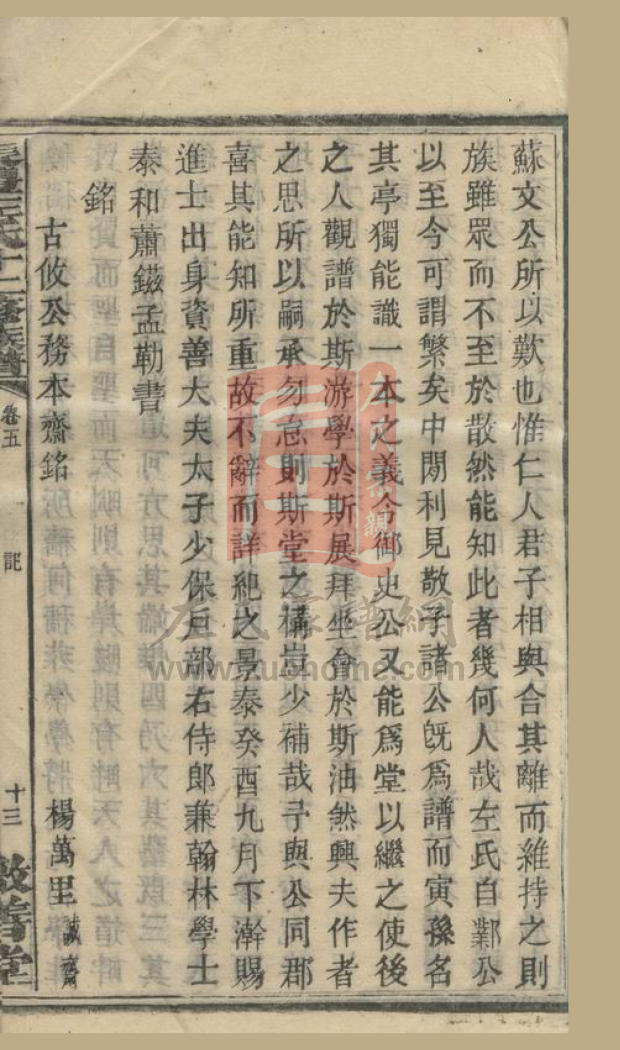 蘇文公所以歎也惟仁人君子相與合其離而維持之則
族雖眾而不至於散然能知此者幾何人哉左氏自鄴公
以至今可謂繁矣中閒利見敬子諸公旣爲譜而寅孫名
其亭獨能識一本之義今御史公又能爲堂以繼之使後
之人觀譜於斯游學於斯展拜坐會於斯油然興夫作者
之思所以嗣承勿怠則斯堂之構豈少補哉予與公同郡
喜其能知所重故不辭而詳紀之景泰癸酉九月下澣賜
進士出身資善大夫太子少保戶部右侍郎兼翰林學士
泰和蕭鎡孟勒書
銘
古攸公務本齋銘
楊萬里 誠齋
氏十二修族譜
卷五
記
十三
敦善堂
左氏家譜網
www.zuohome.com